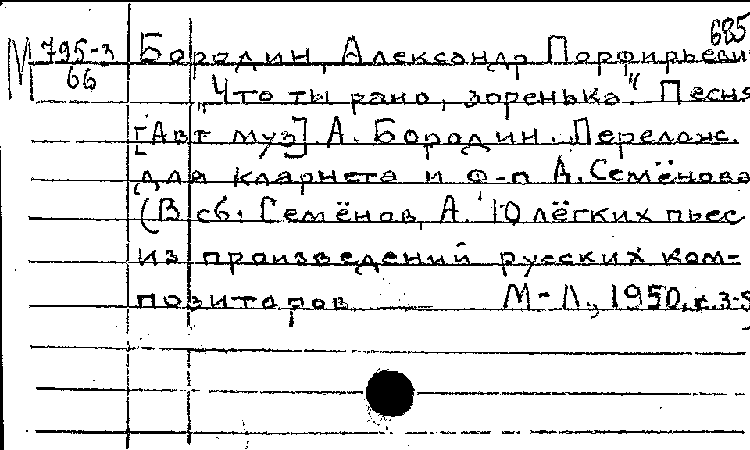 685
М 795-3
66
Бородин, Александр Порфирьеви
„Что ты рано, зоренька". Песня
[Авт муз] А. Бородин. Перелож.
для кларнета и ф-п А. Семёнова
(В сб. Семёнов, А. 10 лёгких пьес
из произведений русских ком-
позиторов М-Л., 1950, с. 3-5